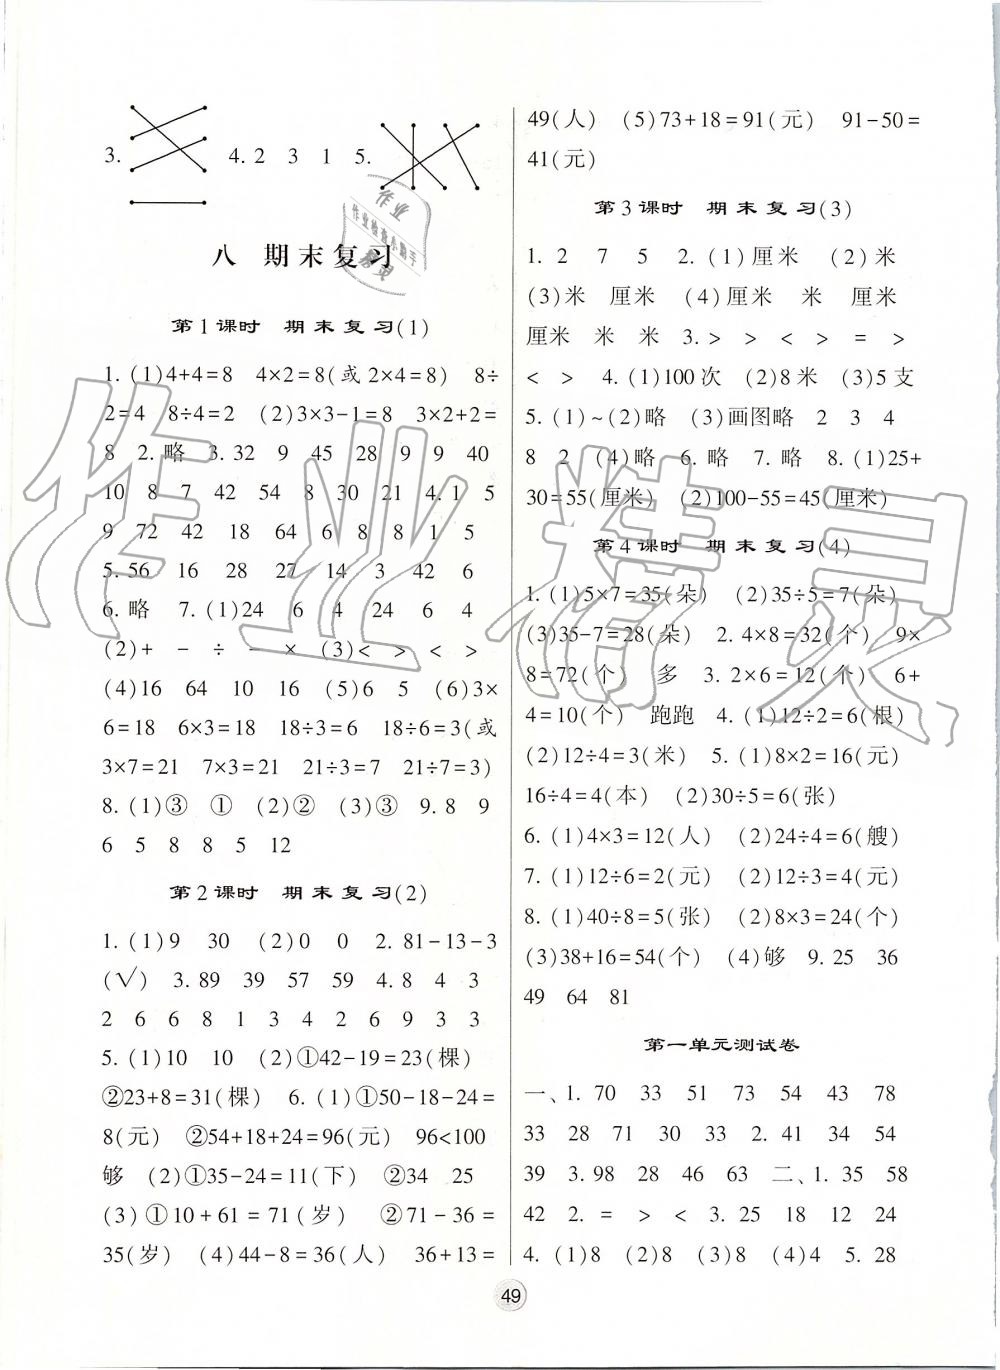 3. 4. 2 3 1 5.
八 期末复习
第1课时 期末复习(1)
1. (1)4+4=8 4×2=8(或2×4=8) 8÷
2=4 8÷4=2 (2)3×3-1=8 3×2+2=
8 2. 略 3. 32 9 45 28 9 9 40
10 8 7 42 54 8 30 21 4. 1 5
9 72 42 18 64 6 8 8 1 5
5. 56 16 28 27 14 3 42 6
6. 略 7. (1)24 6 4 24 6 4
(2)+ - ÷ - × (3)< > < >
(4)16 64 10 16 (5)6 5 (6)3×
6=18 6×3=18 18÷3=6 18÷6=3(或
3×7=21 7×3=21 21÷3=7 21÷7=3)
8. (1)③ ① (2)② (3)③ 9. 8 9
6 5 8 8 5 12
第2课时 期末复习(2)
1. (1)9 30 (2)0 0 2. 81-13-3
(√) 3. 89 39 57 59 4. 8 4 3
2 6 6 8 1 3 4 2 6 9 3 3
5. (1)10 10 (2)①42-19=23(棵)
②23+8=31(棵) 6. (1)①50-18-24=
8(元) ②54+18+24=96(元) 96<100
够 (2)①35-24=11(下) ②34 25
(3)①10+61=71(岁) ②71-36=
35(岁) (4)44-8=36(人) 36+13=
49(人) (5)73+18=91(元) 91-50=
41(元)
第3课时 期末复习(3)
1. 2 7 5 2. (1)厘米 (2)米
(3)米 厘米 (4)厘米 米 厘米
厘米 米 米 3. > > < > = >
< > 4. (1)100次 (2)8米 (3)5支
5. (1)~(2)略 (3)画图略 2 3 4
8 2 (4)略 6. 略 7. 略 8. (1)25+
30=55(厘米) (2)100-55=45(厘米)
第4课时 期末复习(4)
1. (1)5×7=35(朵) (2)35÷5=7(朵)
(3)35-7=28(朵) 2. 4×8=32(个) 9×
8=72(个) 多 3. 2×6=12(个) 6+
4=10(个) 跑跑 4. (1)12÷2=6(根)
(2)12÷4=3(米) 5. (1)8×2=16(元)
16÷4=4(本) (2)30÷5=6(张)
6. (1)4×3=12(人) (2)24÷4=6(艘)
7. (1)12÷6=2(元) (2)12÷3=4(元)
8. (1)40÷8=5(张) (2)8×3=24(个)
(3)38+16=54(个) (4)够 9. 25 36
49 64 81
第一单元测试卷
一、1. 70 33 51 73 54 43 78
33 28 71 30 33 2. 41 34 54
39 3. 98 28 46 63 二、1. 35 58
42 2. = > < 3. 25 18 12 24
4. (1)8 (2)8 (3)8 (4)4 5. 28
49
作业精灵
作业
作业检查小助手